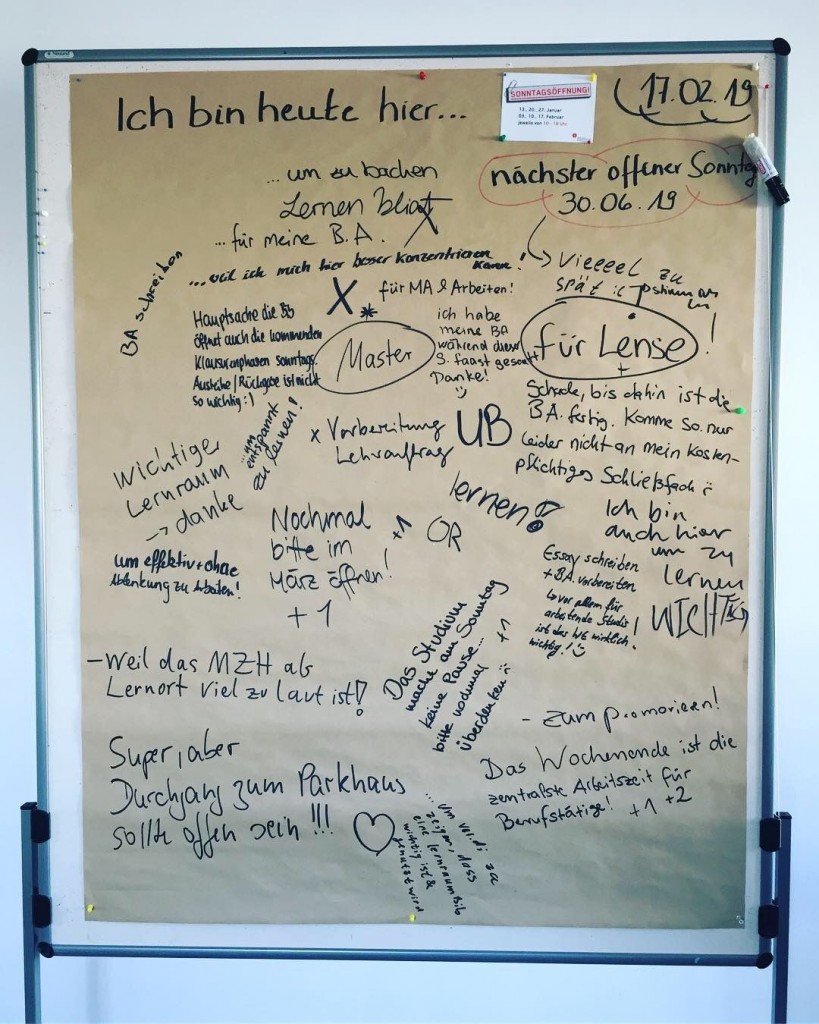 Ich bin heute hier...
SONNTAGSÖFFNUNG!
13., 20., 27. Januar
03. 10. 17. Februar
jeweils von 10 - 18 Uhr
17.02.19
nächster offener Sonntag
30.06.19
...um zu bachen
Lernen
...für meine B.A.
...weil ich mich hier besser konzentrieren
kann!
BA schreiben
Vieeeel zu
spät
X
für MA & Arbeiten!
Hauptsache die
öffnet auch die kommenden
Klausurenphasen sonntags.
Ausleihe/Rückgabe ist nicht
so wichtig :)
*
Master
ich habe
meine BA
während dieser
S.
Danke!
für Lense
+
!
Schade, bis dahin ist die
B.A. fertig. Komme so nur
leider nicht an mein kosten-
pflichtiges Schließfach
...um
entspannt
zu lernen!
x Vorbereitung
Lehrauftrag
UB
Wichtiger
Lernraum
-> danke
lernen!
Ich bin
auch hier
um zu
lernen
WICHTIG
Nochmal
bitte im
März öffnen!
+1
+1
OR
um effektiv + ohne
Ablenkung zu arbeiten!
Essay schreiben
+ B.A. vorbereiten
vor allem für
arbeitende Studis
ist das WE wirklich
wichtig!
Das Studium
macht am Sonntag
keine Pause...
bitte nochmal
überdenken
+1
- Weil das MZH als
Lernort viel zu laut ist!
- zum promovieren!
Super, aber
Durchgang zum Parkhaus
sollte offen sein!!!
Das Wochenende ist die
zentralste Arbeitszeit für
Berufstätige! +1 +2
... um zu
zeigen, dass
eine lernraum Bib
wichtig ist &
genutzt wird